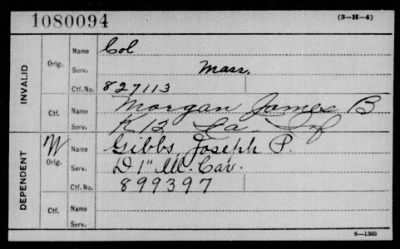 1080094
(3-H-4)
INVALID
Orig.
Name Col
Serv. Mass.
Ctf. No. 827113
Ctf.
Name Morgan James B
Serv. K 12 La Inf
DEPENDENT
W
Orig.
Name Gibbs, Joseph P.
Serv. D 1" M. Cav.
Ctf. No. 899397
Ctf.
Name
Serv.
6-1380